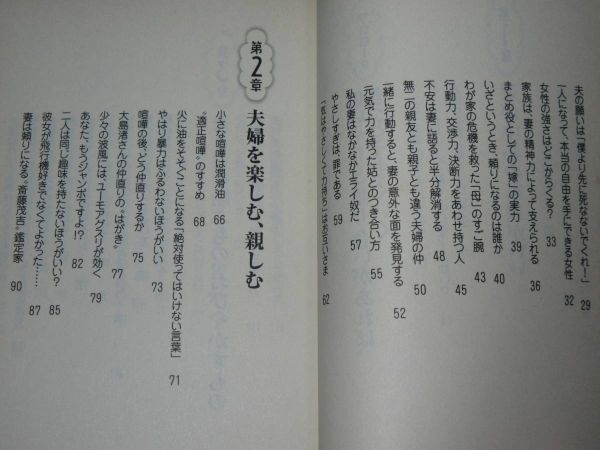 夫の願いは「僕より先に死なないでくれ!」 29
一人になって、本当の自由を手にできる女性 32
女性の強さはどこからくる? 33
家族は、妻の精神力によって支えられる 36
まとめ役としての「嫁」の実力 39
いざというとき、頼りになるのは誰か 40
わが家の危機を救った「母」のすご腕 43
行動力、交渉力、決断力をあわせ持つ人 45
不安は妻に語ると半分解消する 48
無二の親友とも親子とも違う夫婦の仲 50
一緒に行動すると、妻の意外な面を発見する 52
元気で力を持った姑とのつき合い方 55
私の妻はなかなかエライ奴だ 57
やさしすぎは、罪である 59
「気はやさしくて力持ち」はお互いさま 62
第2章 夫婦を楽しむ、親しむ
小さな喧嘩は潤滑油 66
“適正喧嘩”のすすめ 68
火に油をそそぐことになる「絶対使ってはいけない言葉」 71
やはり暴力はふるわないほうがいい 73
喧嘩の後、どう仲直りするか 75
大島渚さんの仲直りの“はがき” 77
少々の波風には、ユーモアグスリが効く 79
あなた、もうジャンボですよ!? 82
二人は同じ趣味を持たないほうがいい? 85
彼女が飛行機好きでなくてよかった…… 87
妻は頼りになる“斎藤茂吉”鑑定家 90